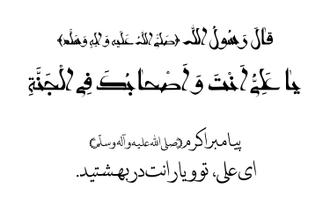 قالَ رَسُولُ اللّٰه ﴿صَلَّی اللّٰهُ عَلَیْهِ وَ اٰلِهِ وَ سَلَّمَ﴾
یٰا عَلِیُّ اَنْتَ وَ اَصْحٰابُکَ فِی الْجَنَّةِ
پیامبر اکرم (صلی الله علیه و آله وسلّم)
ای علی، تو و یارانت در بهشتید.